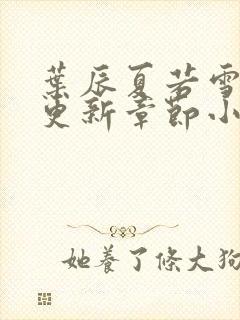 葉辰夏若雪
更新章節小
她養了條大狗